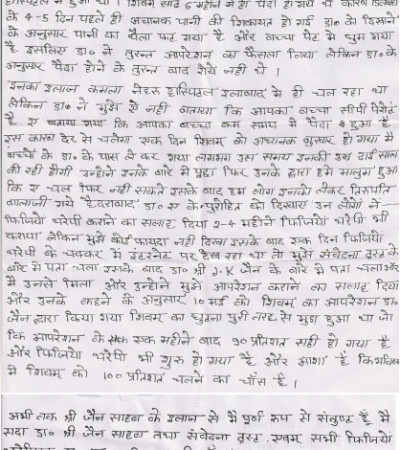 हास्पिटल में हुआ था। शिवम् साढ़े 6 महीने में ही पैदा हो गये थे
के 4-5 दिन पहले ही अचानक पानी की शिकायत हो गई डा० को दिखाने
के अनुसार पानी का थैला फट गया है और बच्चा पेट में घुम गया
है इसलिए डा० ने तुरन्त आपरेशन का फैसला लिया लेकिन डा० के
अनुसार पैदा होने के तुरन्त बाद रोये नहीं थे।
इनका इलाज कमला नेहरू हास्पिटल इलाबाद में ही चल रहा था
लेकिन डा० ने मुझे ये नहीं बताया कि आपका बच्चा सीपी पेशेंट
है ए बताया गया कि आपका बच्चा कम समय में पैदा हुआ है
इस कारण देर से चलेगा एक दिन शिवम् को अचानक बुखार हो गया मैं
बच्चे के डा० के पास ले कर गया लगभग उस समय इनकी उम्र ढाई साल
की रही होगी उन्होने इनके बारे में पूछा फिर उनके द्वारा हमे मालुम हुआ
कि ए चल फिर नहीं सकते इसके बाद हम लोग इनको लेकर तिरुपति
बालाजी गये हैदराबाद डा० ए के पुरोहित को दिखाए उन लोगों ने
फिजियो थरेपी कराने का सलाह दिया 2-4 महीने फिजियो थरेपी भी
कराया लेकिन मुझे कोई फायदा नहीं दिखा इसके बाद एक दिन फिजियो
थरेपी के चक्कर में इंटरनेट पर देख रहा था तो मुझे संवेदना ट्रस्ट के
बारे में पता चला इसके बाद डा० श्री J.K जैन के बारे में पता चला और
मैं उनसे मिला और उन्होने मुझे आपरेशन कराने का सलाह दिया
और उनके कहने के अनुसार 10 मई को शिवम् का आपरेशन डा०
जैन द्वारा किया गया शिवम् का घुटना पुरी तरह से मुड़ा हुआ था जो
कि आपरेशन के एक महीने बाद 90 प्रतिशत सही हो गया है
और फिजियो थरेपी भी शुरू हो गया है और आशा है कि भविष्य
में शिवम् को 100 प्रतिशत चलने का चाँस है।
अभी तक श्री जैन साहब के इलाज से मैं पूर्ण रूप से संतुष्ट हूँ मैं
सदा डा० श्री जैन साहब तथा संवेदना ट्रस्ट, एवम् सभी फिजियो